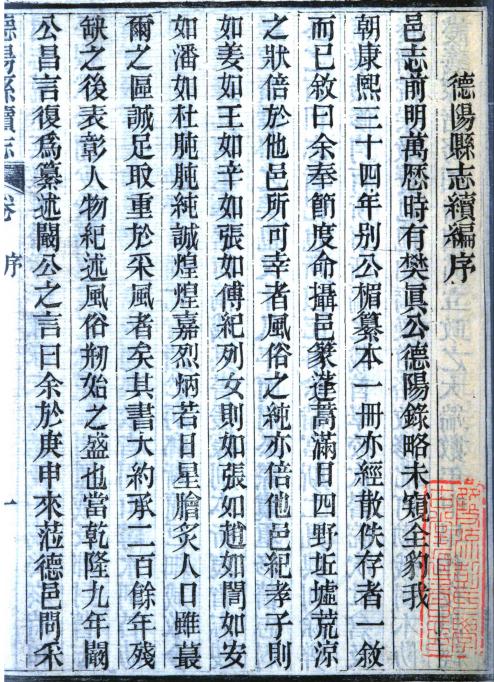 德陽縣志續編序
邑志前明萬歷時有樊眞公德陽錄略未窺全豹我
朝康熙三十四年別公楣纂本一冊亦經散佚存者一敘
而已敘曰余奉節度命攝邑篆蓬蒿滿目四野坵墟荒涼
之狀倍於他邑所可幸者風俗之純亦倍他邑紀孝子則
如姜如王如辛如張如傅紀列女則如張如趙如誾如安
如潘如杜肫肫純誠煌煌嘉烈炳若日星膾炙人口雖蕞
爾之區誠足取重於采風者矣其書大約承二百餘年殘
缺之後表彰人物紀述風俗剏始之盛也當乾隆九年闞
公昌言復爲纂述闞公之言曰余於庚申來蒞德邑問采
德陽縣續志
卷
序
一